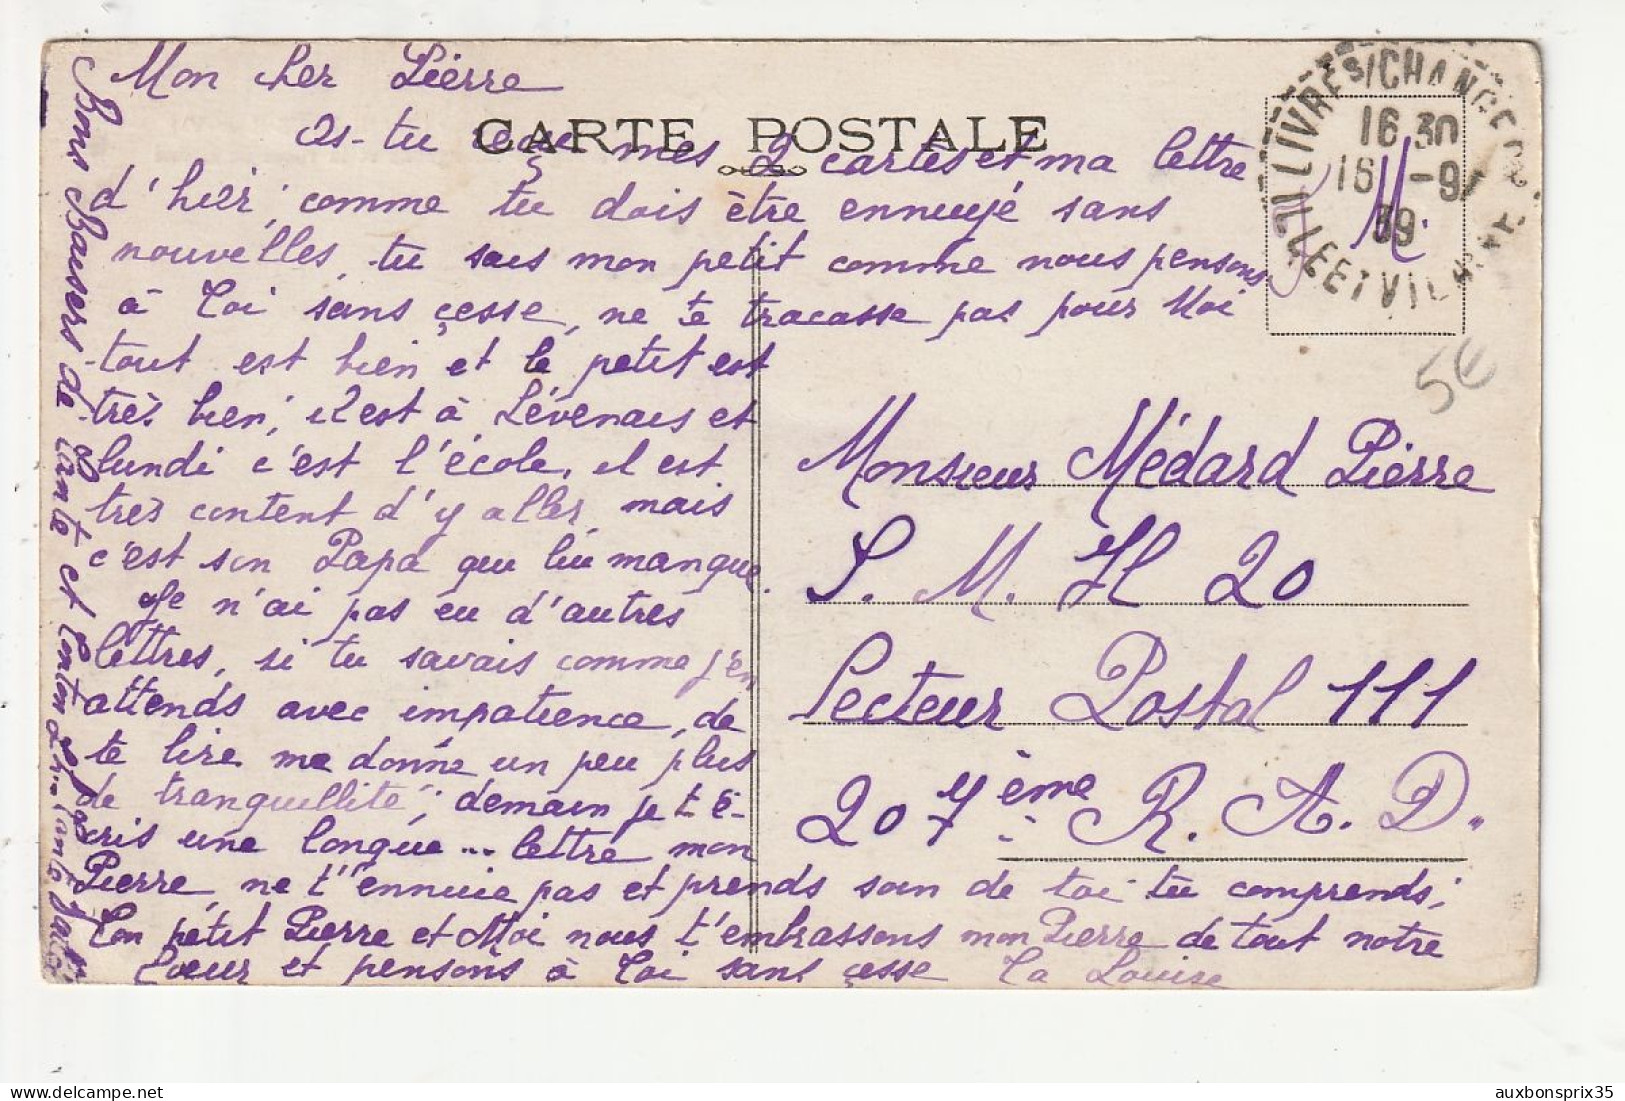 Mon cher Pierre
CARTE POSTALE
As-tu reçu mes 2 cartes et ma lettre
d'hier, comme tu dois être ennuyé sans
nouvelles, tu sais mon petit comme nous pensons
à Toi sans çesse, ne te tracasse pas pour Moi
tout est bien et le petit est
très bien, il est à Lévenais et
lundi c'est l'école, il est
très content d'y aller, mais
c'est son Papa qui lui manque.
Je n'ai pas eu d'autres
lettres, si tu savais comme j'en
attends avec impatience, de
te lire me donne un peu plus
de tranquillité, demain je t'é-
cris une longue... lettre mon
Pierre, ne t'ennuie pas et prends soin de toi tu comprends,
Ton petit Pierre et Moi nous t'embrassons mon Pierre de tout notre
Cœur et pensons à Toi sans çesse Ta Louise
Bons Baisers de Tante et Tonton
F. M.
LIVRE S/CHANGEON
16 30
16 -9
39
ILLE ET VILAINE
5€
Monsieur Médard Pierre
S. M. H 20
Secteur Postal 111
207ème R. A. D.
auxbonsprix35